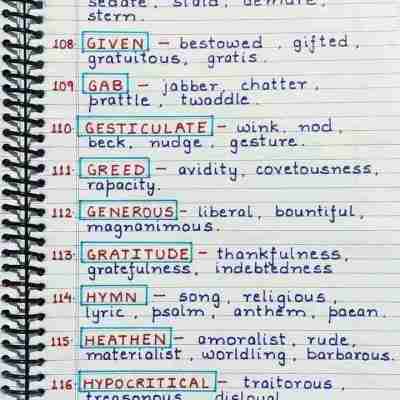 sedate, staid, demure,
stern.
108. GIVEN - bestowed, gifted,
gratuitous, gratis.
109. GAB - jabber, chatter,
prattle, twaddle.
110. GESTICULATE - wink, nod,
beck, nudge, gesture.
111. GREED - avidity, covetousness,
rapacity.
112. GENEROUS - liberal, bountiful,
magnanimous.
113. GRATITUDE - thankfulness,
gratefulness, indebtedness
114. HYMN - song, religious,
lyric, psalm, anthem, paean.
115. HEATHEN - amoralist, rude,
materialist, worldling, barbarous.
116. HYPOCRITICAL - traitorous,
treasonous, disloyal